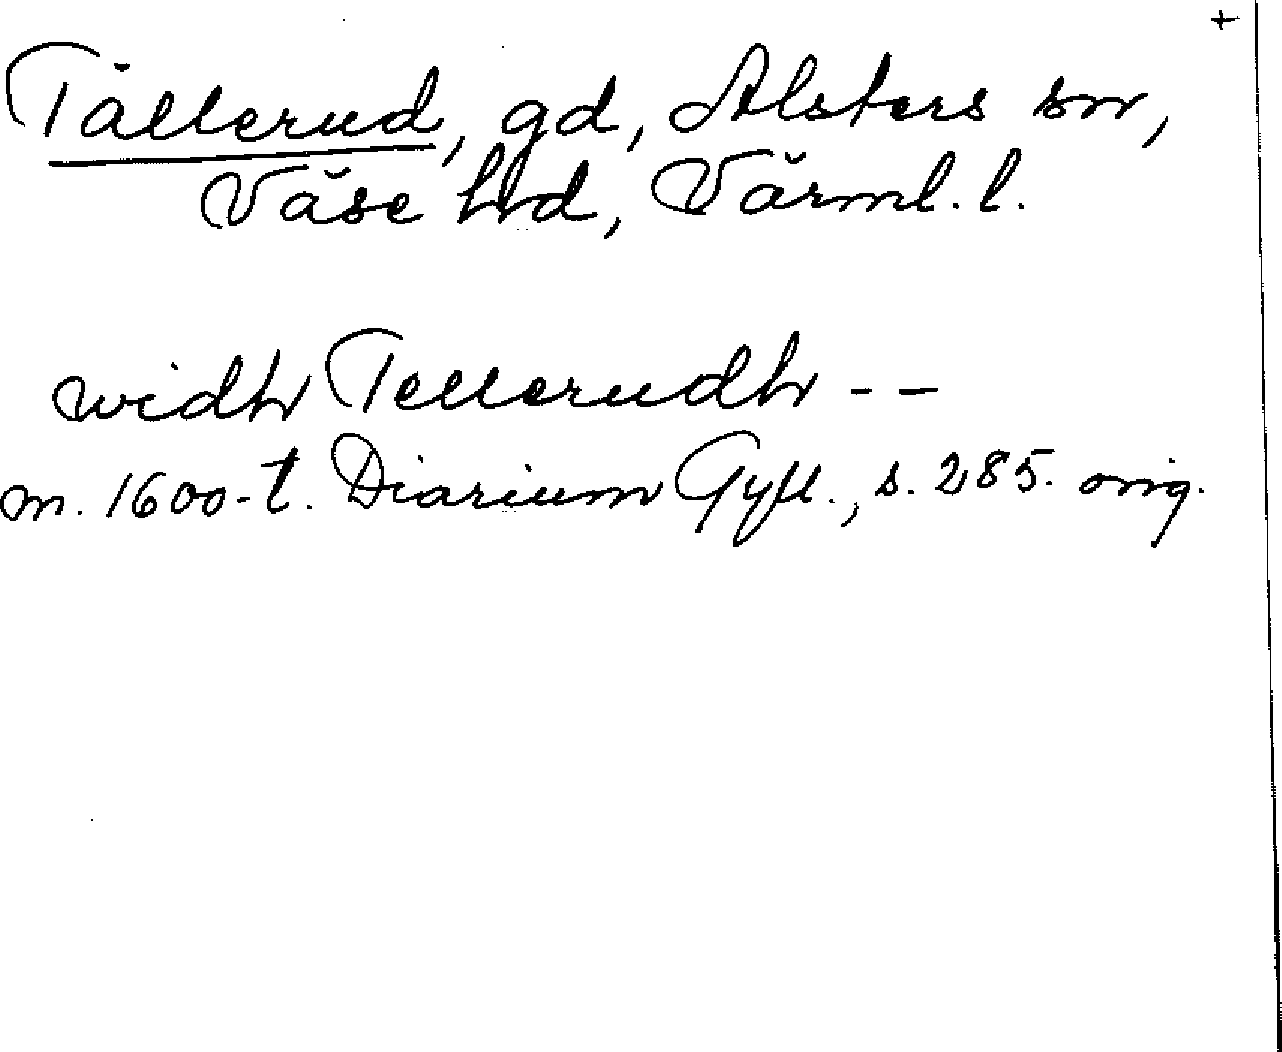 +
Tällerud, gd, Alsters sn,
Väse hd, Värml. l.
widh Tellerudh - -
m. 1600-t. Diarium Gyll., s. 285. orig.